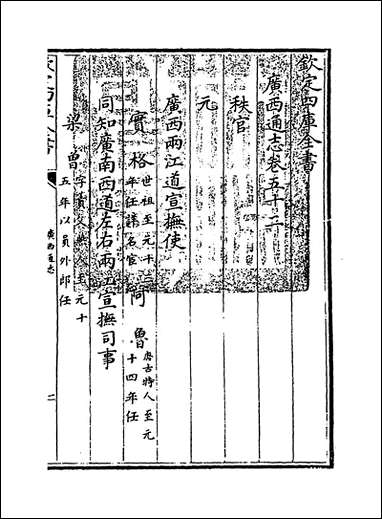 欽定四庫全書
廣西通志卷五十二
秩官
元
廣西兩江道宣撫使
實格 世祖至元十二
年任詳名宦 阿魯 唐古特人至元
十四年任
同知廣南西道左右兩江宣撫司事
梁曾 字貢父燕人至元十
五年以員外郎任
廣西通志 二